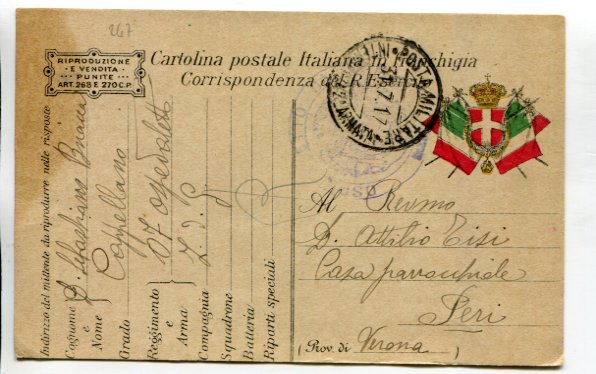 267
RIPRODUZIONE
E VENDITA
PUNITE
ART. 268 E 270 C.P.
Cartolina postale Italiana in franchigia
Corrispondenza del R. Esercito
POSTA MILITARE
7.17
Indirizzo del mittente da riprodurre nelle risposte
Cognome e Nome
Grado Cappellano
Reggimento e Arma 07 Ospedaletto
Compagnia Z. d. G
Squadrone
Batteria
Riparti speciali
Al Revmo
D. Attilio Tisi
Casa parrocchiale
Peri
(Prov. di Verona)